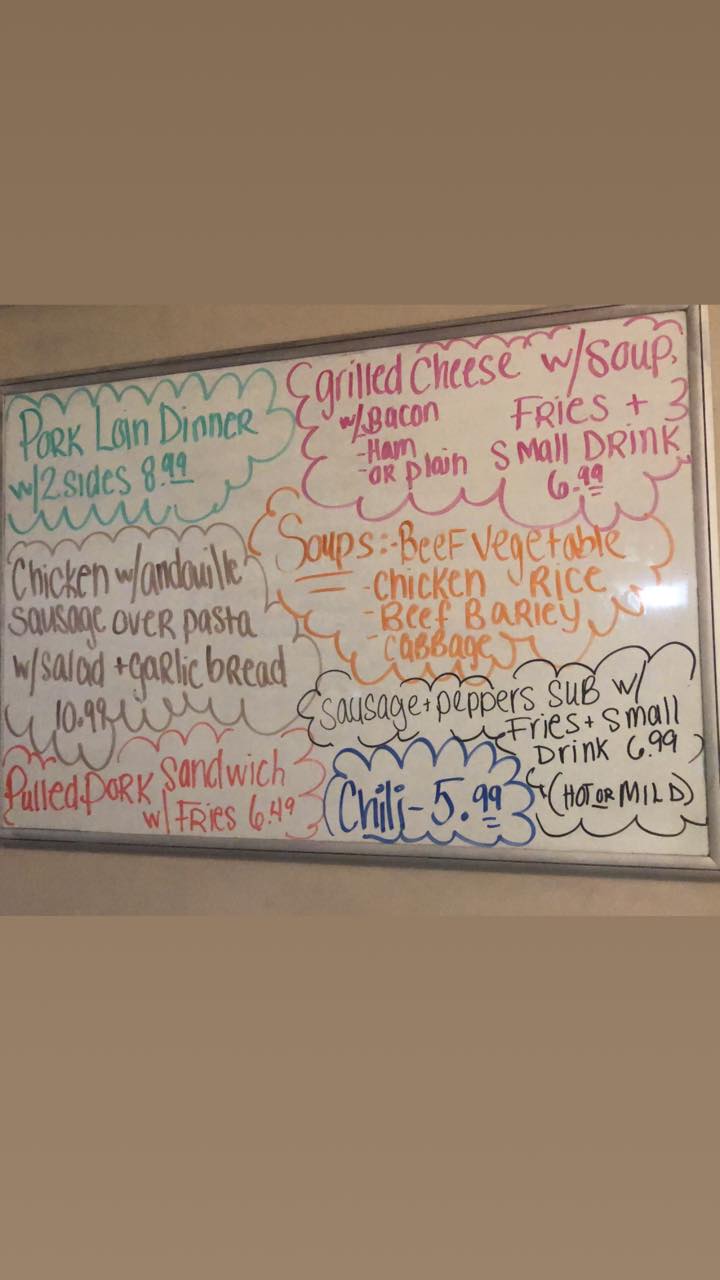 Pork Loin Dinner
w/2 sides 8.99
grilled Cheese w/Soup,
w/Bacon
-Ham
-OR plain
Fries +
Small Drink
6.99
Soups:-Beef Vegetable
-Chicken Rice
-Beef Barley
-Cabbage
Chicken w/andouille
sausage over pasta
w/salad + garlic bread
10.99
Sausage + peppers sub w/
Fries + Small
Drink 6.99
(Hot or Mild)
Pulled Pork Sandwich
w/ Fries 6.49
Chili - 5.99